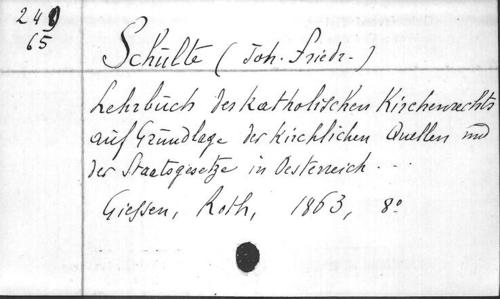 249
65
Schulte (Joh. Friedr.)
Lehrbuch des katholischen Kirchenrechts
auf Grundlage der kirchlichen Quellen und
der Staatsgesetze in Oesterreich...
Giessen, Roth, 1863, 8º